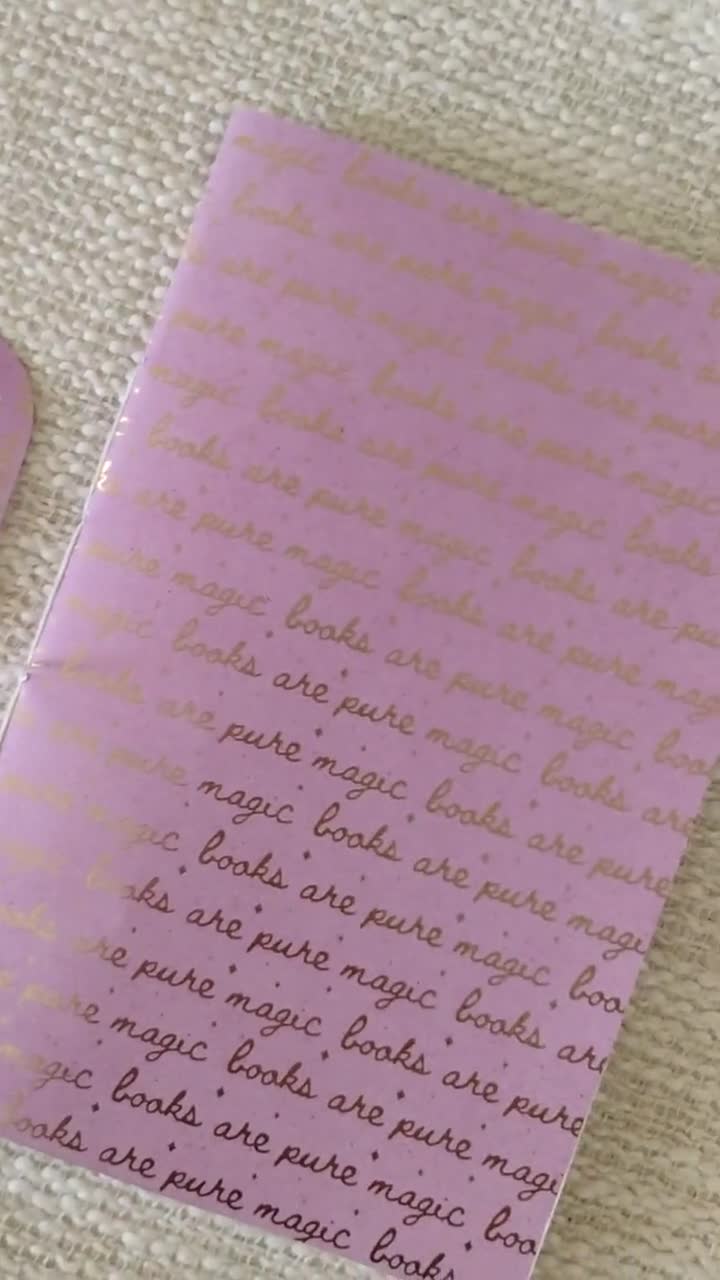 magic books are pure magic
books are pure magic books
are pure magic books are pure
pure magic books are pure magic
magic books are pure magic books
books are pure magic books are pu
are pure magic books are pure mag
pure magic books are pure magic boo
magic books are pure magic books are
books are pure magic books are pure
are pure magic books are pure magi
pure magic books are pure magic boo
magic books are pure magic books are
books are pure magic books are pure
pure magic books are pure magi
magic books are pure magic boo
books are pure magic books